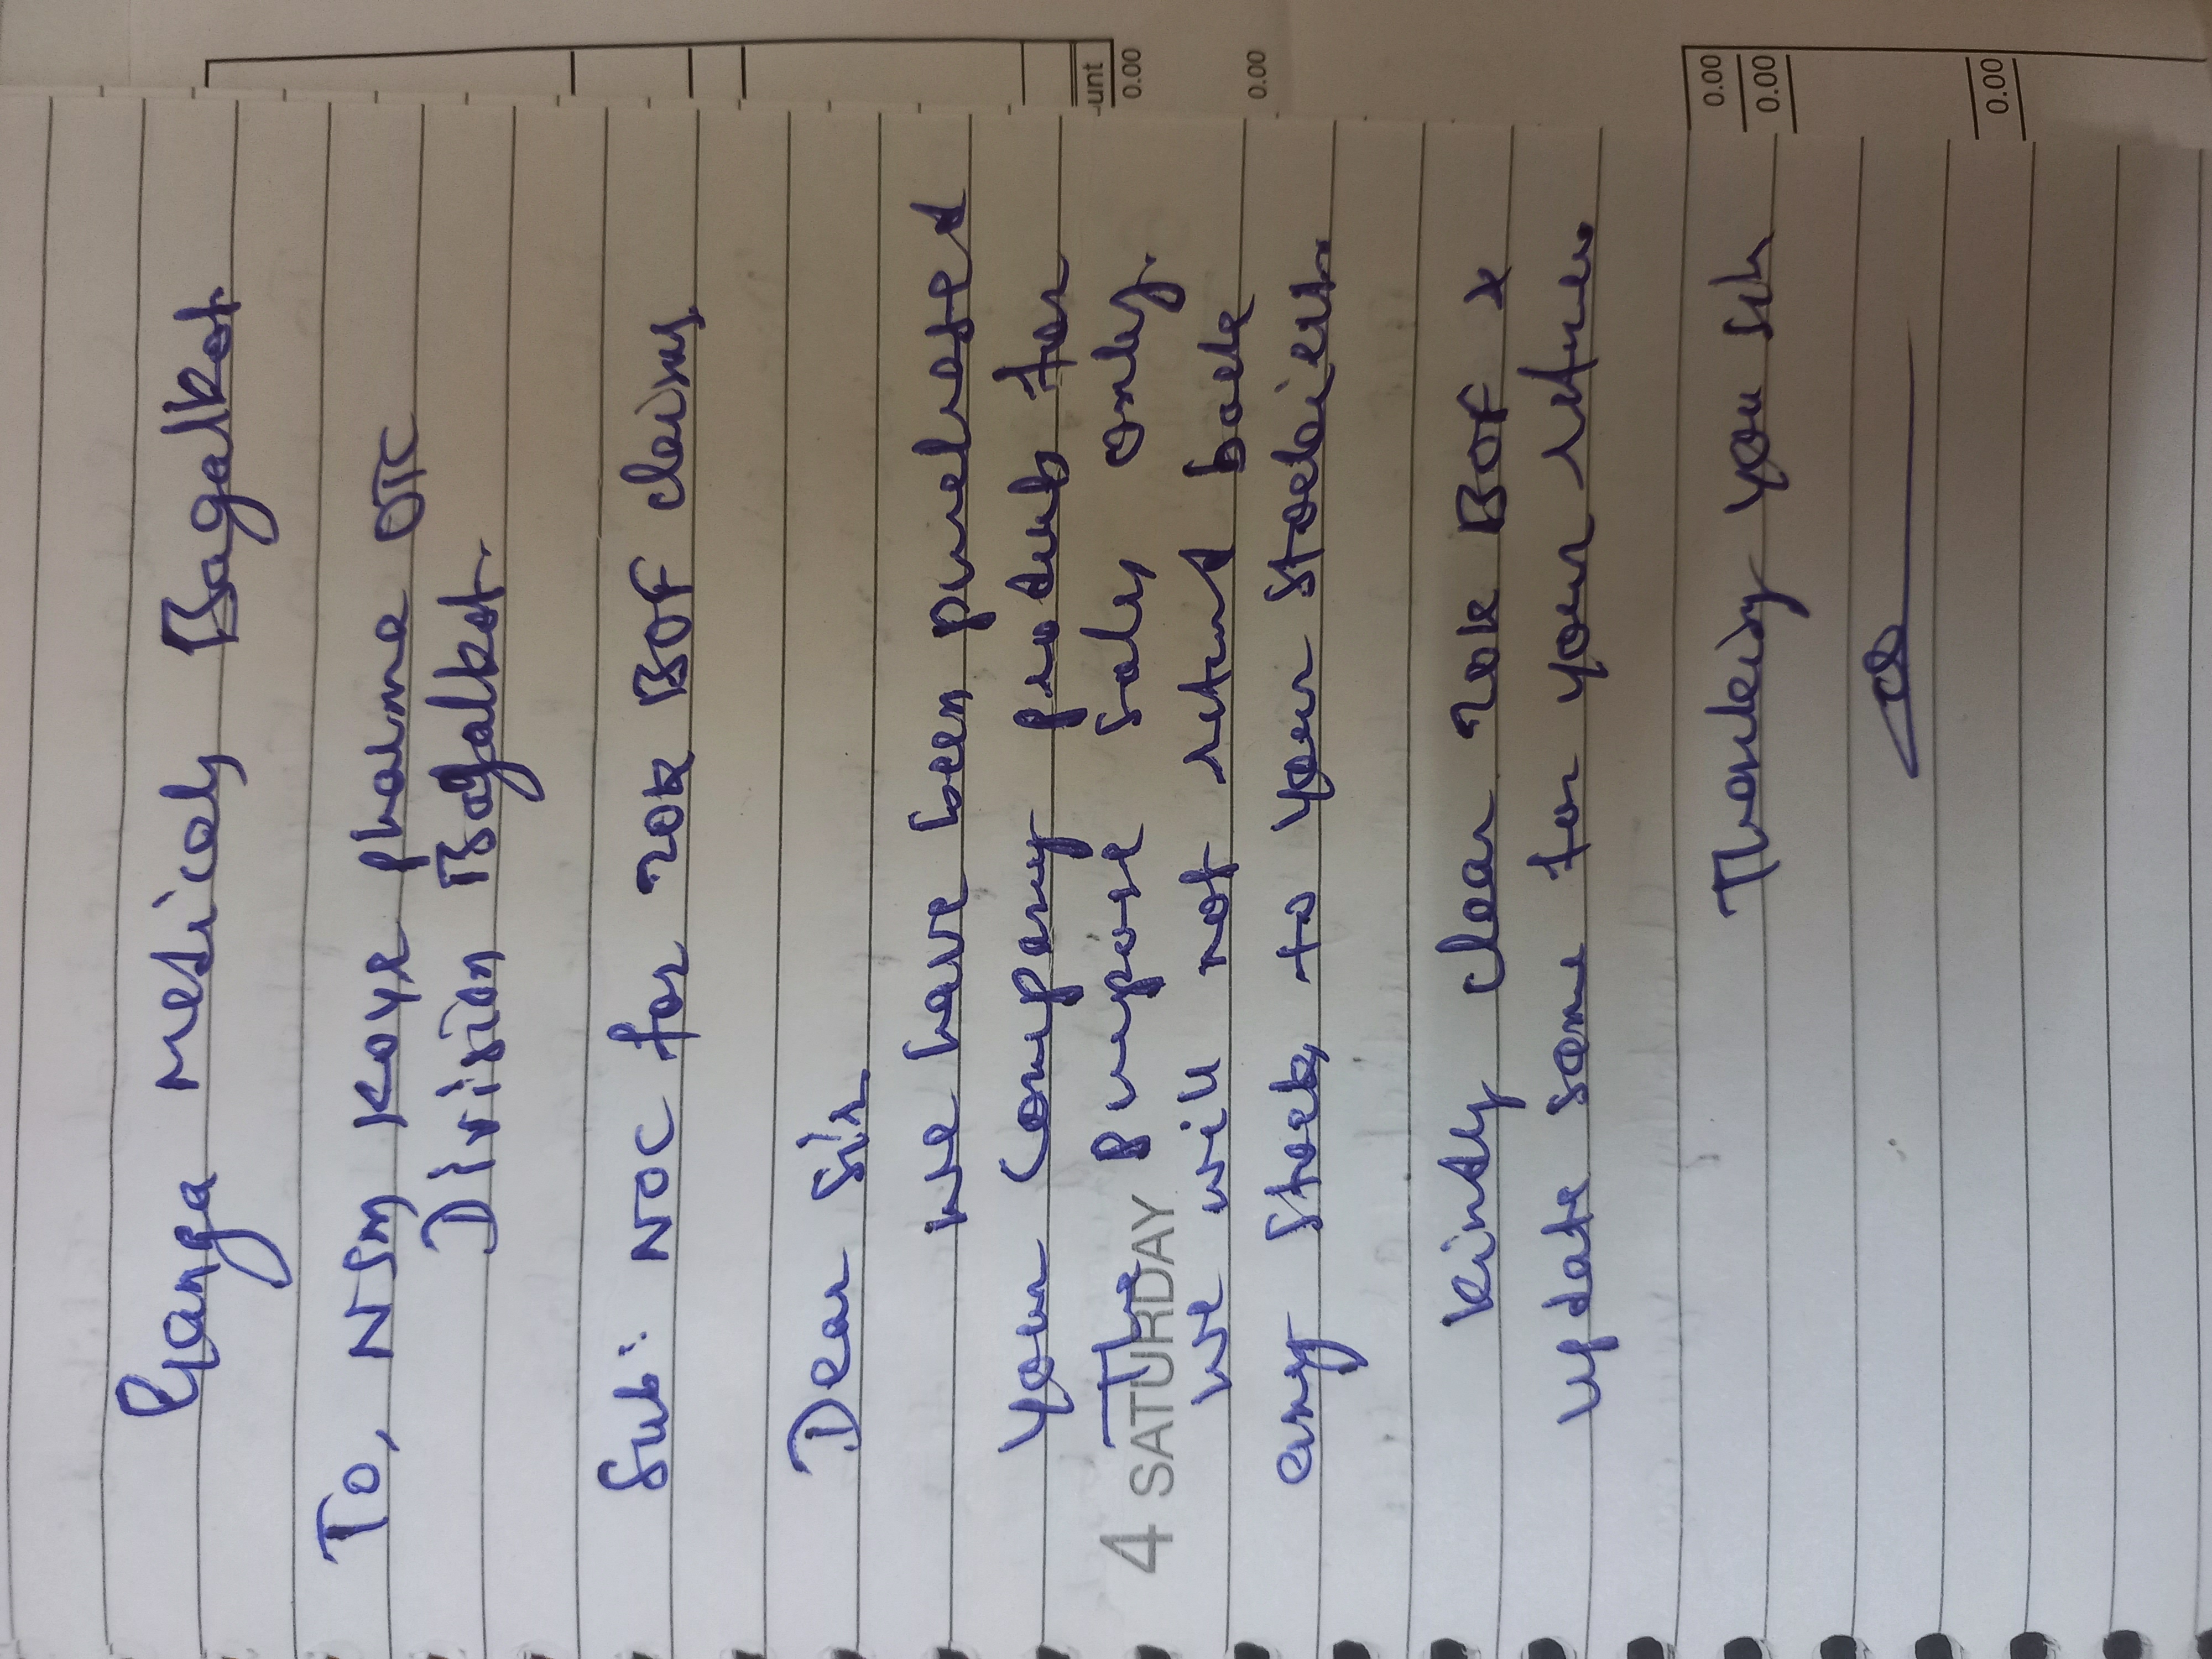 Ranga Medicals Bagalkot.
To, NSM Koye pharma OTC
Division Bagalkot.
Sub: NOC for 20k BOF claims,
Dear Sir
we have been purchased
your company products for
The purpose sales only.
4 SATURDAY
we will not return back
any stock to your stockiest.
Kindly clear 20k BOF
update same for your
Thanking you sir
unt
0.00
0.00
0.00
0.00
0.00